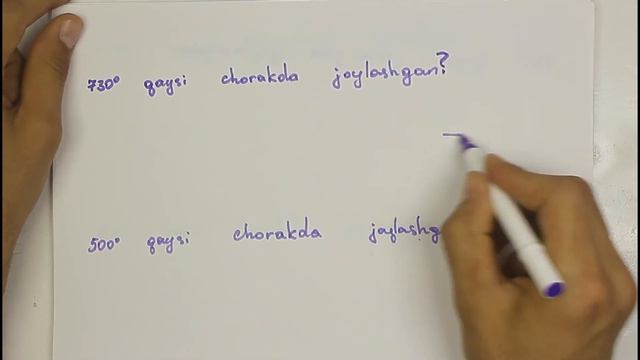 730° qaysi chorakda joylashgan?
500° qaysi chorakda